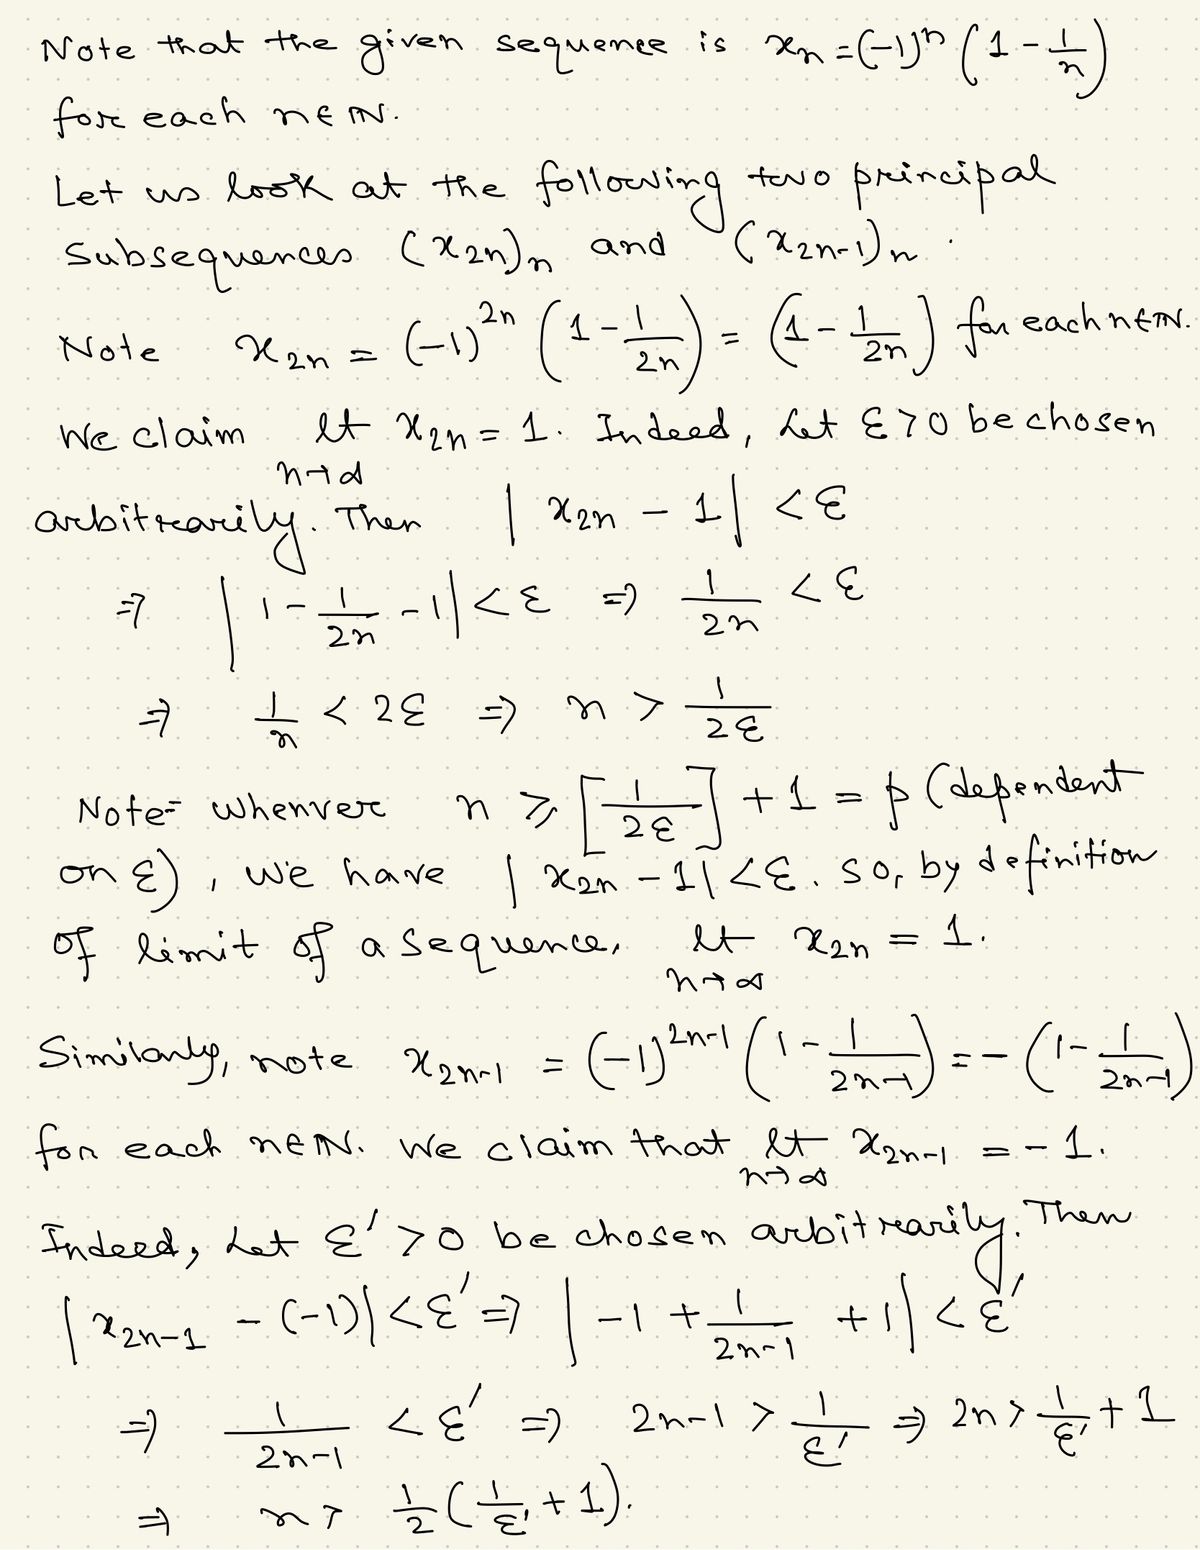 Note that the given sequence is xₙ = (-1)ⁿ (1 - 1/n)
for each n ∈ ℕ.
Let us look at the following two principal
subsequences (x₂ₙ)ₙ and (x₂ₙ₋₁)ₙ.
Note x₂ₙ = (-1)²ⁿ (1 - 1/2n) = (1 - 1/2n) for each n ∈ ℕ.
We claim lt x₂ₙ = 1. Indeed, Let ε > 0 be chosen
n→∞
arbitrarily. Then | x₂ₙ - 1 | < ε
⇒ | 1 - 1/2n - 1 | < ε ⇒ 1/2n < ε
⇒ 1/n < 2ε ⇒ n > 1/2ε
Note- Whenver n ≥ [1/2ε] + 1 = p (dependent
on ε), we have | x₂ₙ - 1 | < ε. So, by definition
of limit of a sequence, lt x₂ₙ = 1.
n→∞
Similarly, note x₂ₙ₋₁ = (-1)²ⁿ⁻¹ (1 - 1/2n-1) = - (1 - 1/2n-1)
for each n ∈ ℕ. We claim that lt x₂ₙ₋₁ = -1.
n→∞
Indeed, Let ε' > 0 be chosen arbitrarily. Then
| x₂ₙ₋₁ - (-1) | < ε' ⇒ | -1 + 1/2n-1 + 1 | < ε'
⇒ 1/2n-1 < ε' ⇒ 2n-1 > 1/ε' ⇒ 2n > 1/ε' + 1
⇒ n > 1/2 (1/ε' + 1).